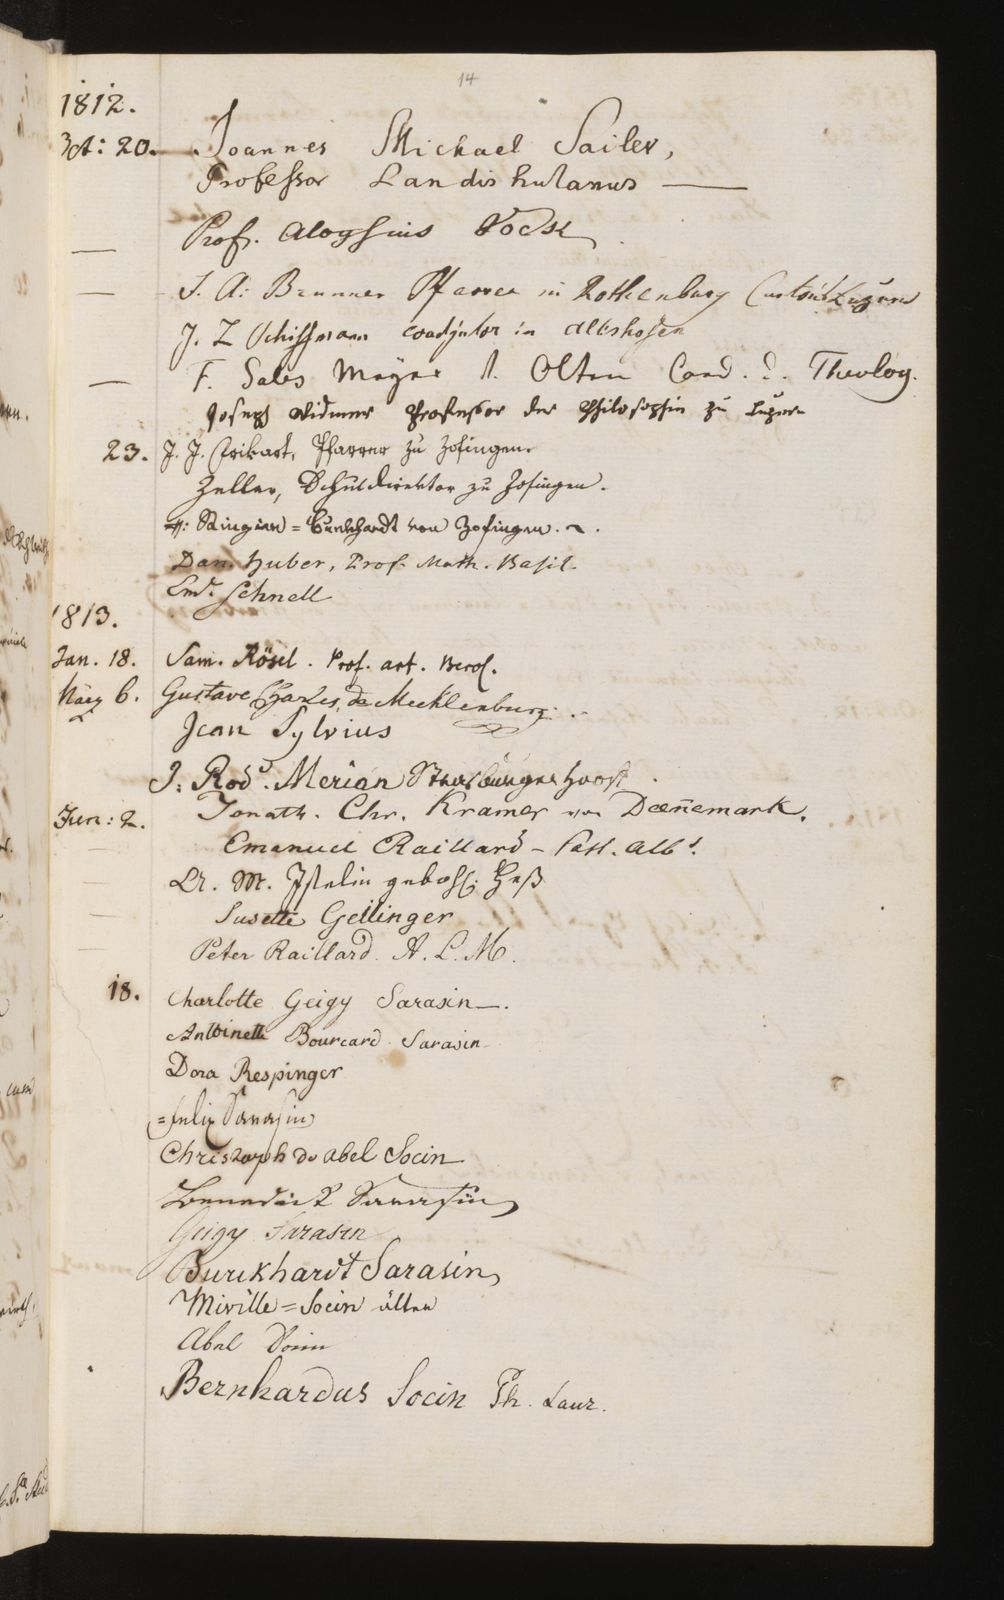 14
1812.
Oct: 20. Joannes Michael Sailer,
Professor Landishutanus —
— Prof. Aloysius Vock
— J. A: Brunner Pfarrer in Rothenburg Cantons Luzern
J. Z Schiffmann coadjutor in Altishofen
— F. Sales Meyer v. Olten Cand. d. Theolog.
Joseph Widmer Professor der Philosophie zu Luzern
23. J. J. Frikart, Pfarrer zu Zofingen.
Zeller, Schuldirektor zu Zofingen.
Burckhardt von Zofingen.
Dan. Huber, Prof. Math. Basil.
Em. Schnell
1813.
Jan. 18. Sam. Rösel. Prof. art. Berol.
März 6. Gustave Charles de Mecklenburg.
Jean Sylvius
J: Rod. Merian
Jun: 2. Jonath. Chr. Kramer von Dænemark.
Emanuel Raillard –
M. Iselin
Susette Geilinger
Peter Raillard. A. L. M.
18. Charlotte Geigy Sarasin —.
Antoinette Bourcard Sarasin
Dora Respinger
Felix Sarasin
Christoph de abel Socin
Benedict Sarasin
Geigy Sarasin
Burckhardt Sarasin
Miville = Socin älter
Abel Socin
Bernhardus Socin Ph. Laur.